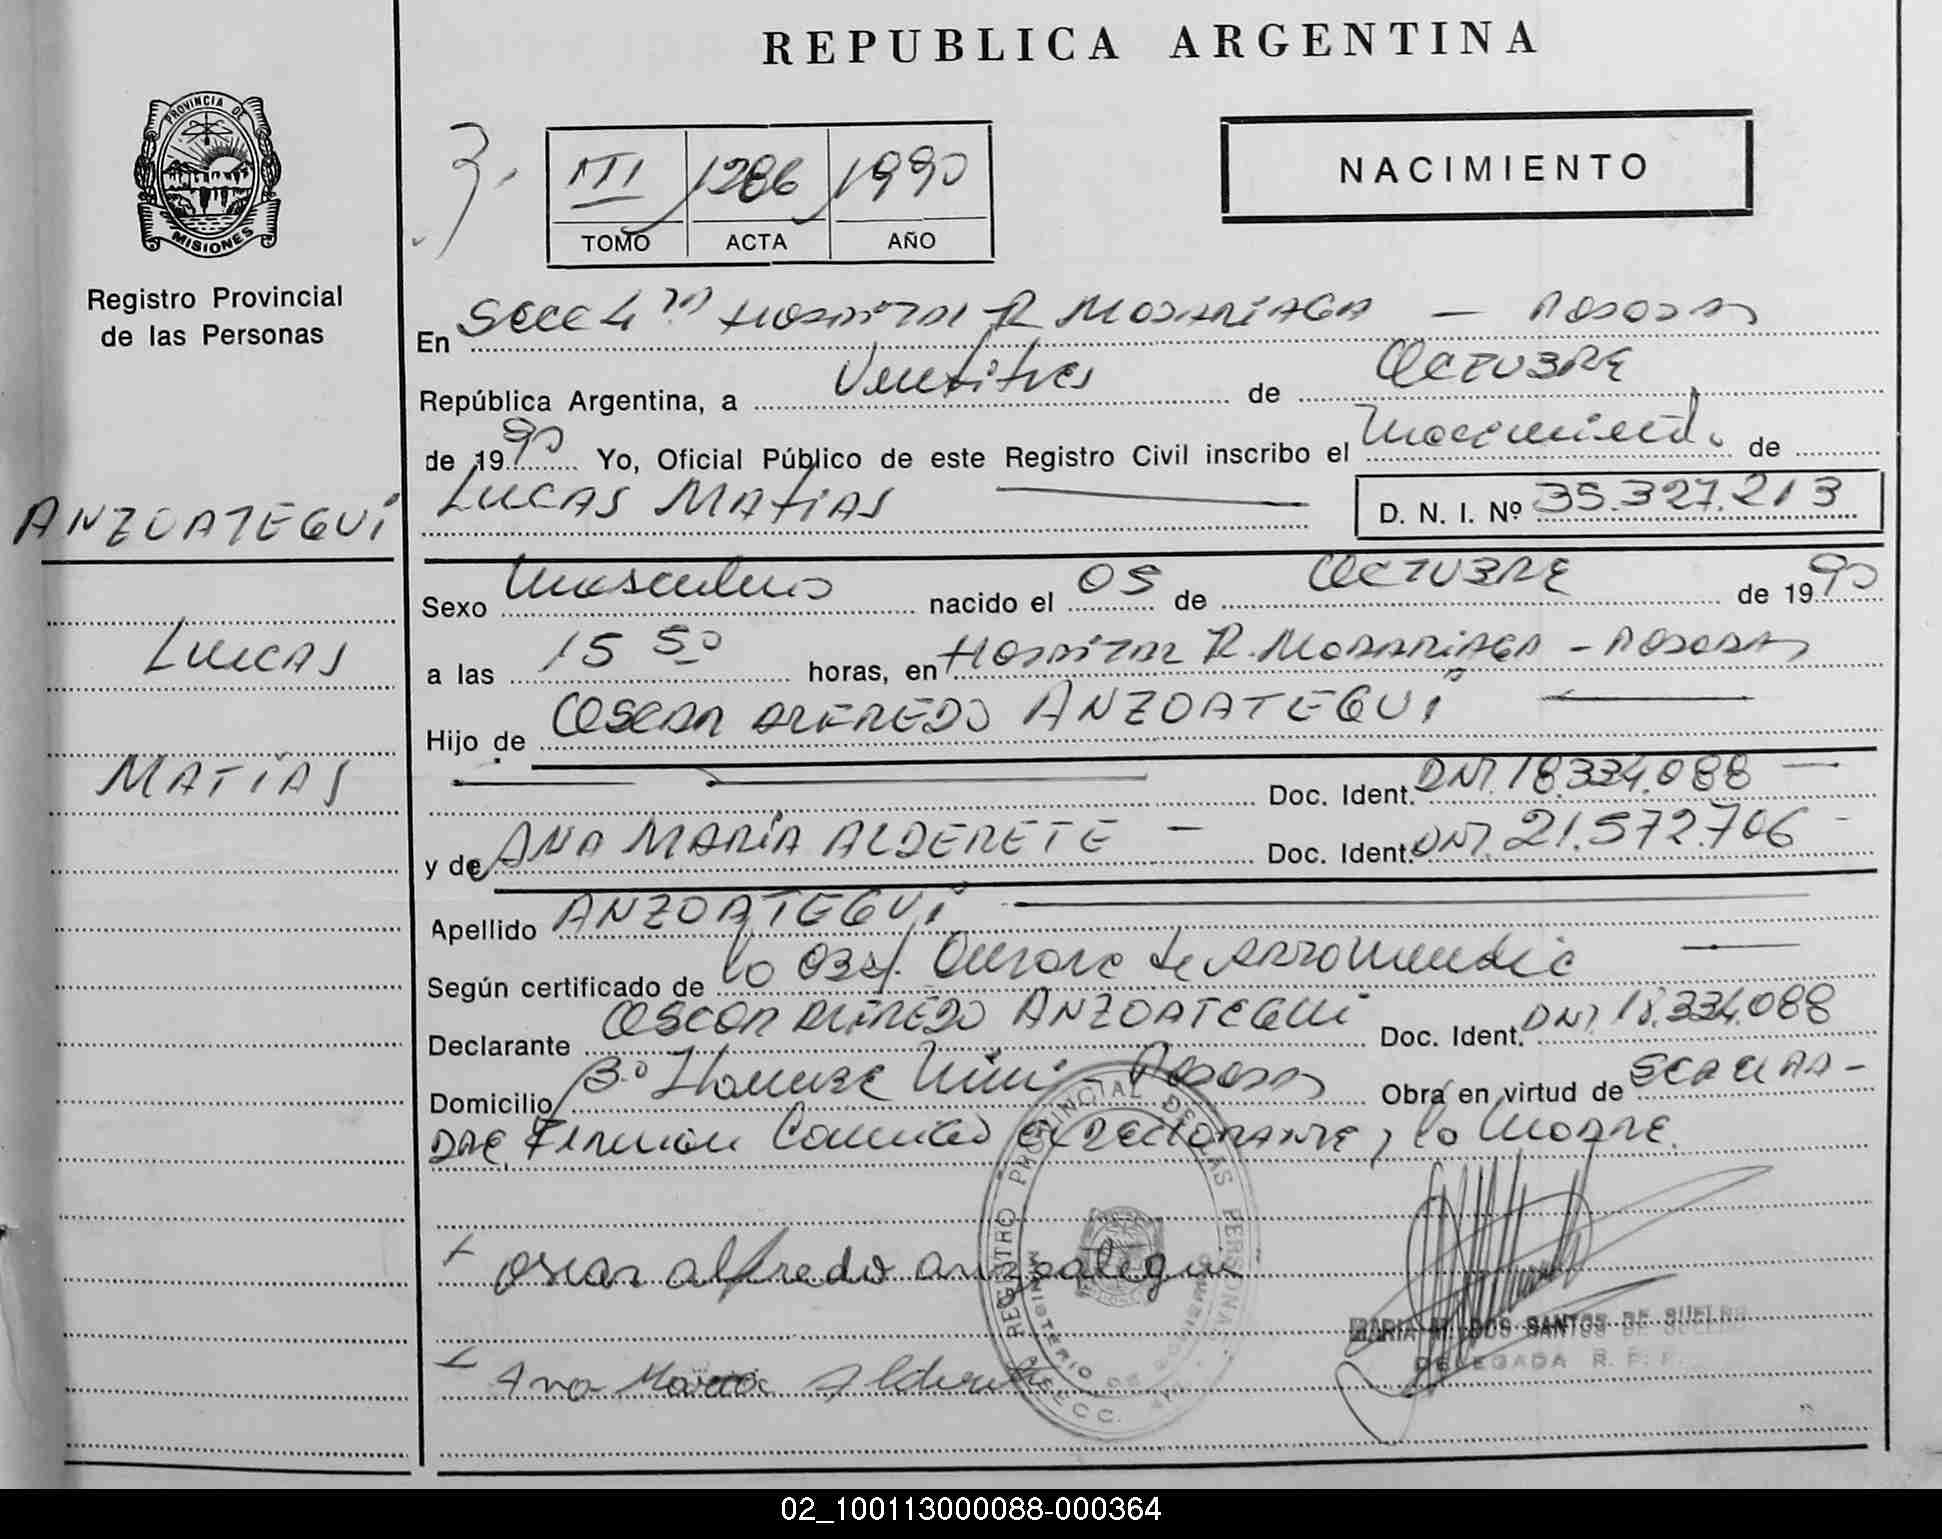 REPUBLICA ARGENTINA
PROVINCIA DE
MISIONES
Registro Provincial
de las Personas
3.
III 1286 1990
TOMO ACTA AÑO
NACIMIENTO
En Secc 4ta Hospital R. MADARIAGA — POSADAS
República Argentina, a Veintitres de OCTUBRE
de 1990 Yo, Oficial Público de este Registro Civil inscribo el nacimiento de
ANZOATEGUI
LUCAS MATIAS D. N. I. Nº 35.327.213
Sexo masculino nacido el 05 de OCTUBRE de 1990
LUCAS
a las 15 50 horas, en Hospital R. MADARIAGA - POSADAS
Hijo de OSCAR ALFREDO ANZOATEGUI
MATIAS
Doc. Ident. DNI. 18.334.088
y de ANA MARIA ALDERETE — Doc. Ident. DNI. 21.572.706
Apellido ANZOATEGUI
Según certificado de la Obst.
Declarante OSCAR ALFREDO ANZOATEGUI Doc. Ident. DNI. 18.334.088
Domicilio Bº Posadas Obra en virtud de SER EL PA-
DRE. Firman el DECLARANTE y la MADRE.
REGISTRO PROVINCIAL DE LAS PERSONAS
MINISTERIO DE GOBIERNO
x oscar alfredo anzoategui
MARIA DOS SANTOS DE
DELEGADA R. P. P.
x Ana Maria Alderete
02_100113000088-000364